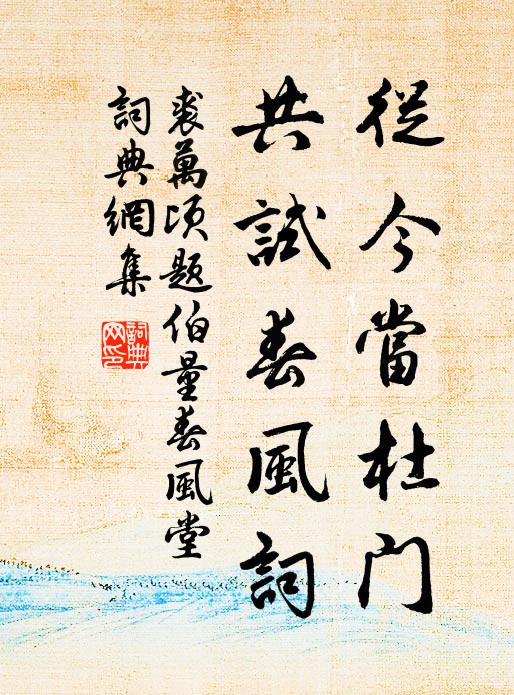 從今當杜门
共試春風詞
裘萬頃题伯量春風堂
詞典網集
詞典
网印